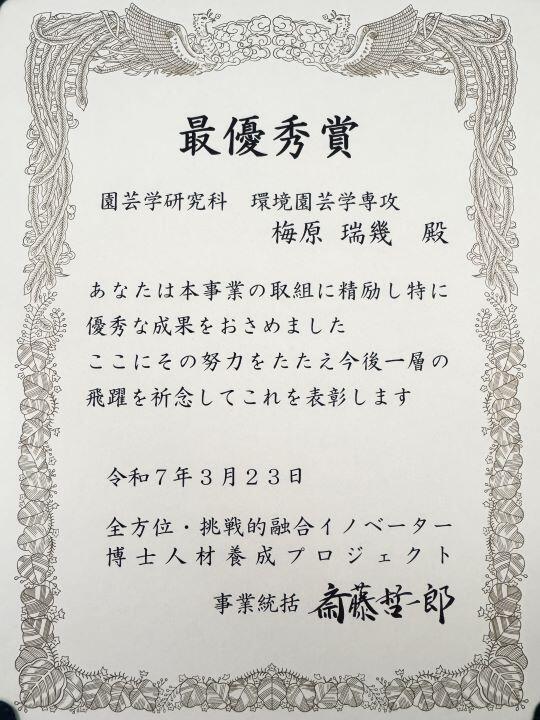 最優秀賞
園芸学研究科　環境園芸学専攻
梅原 瑞幾　殿
あなたは本事業の取組に精励し特に
優秀な成果をおさめました
ここにその努力をたたえ今後一層の
飛躍を祈念してこれを表彰します
令和７年３月２３日
全方位・挑戦的融合イノベーター
博士人材養成プロジェクト
事業統括 斎藤哲一郎